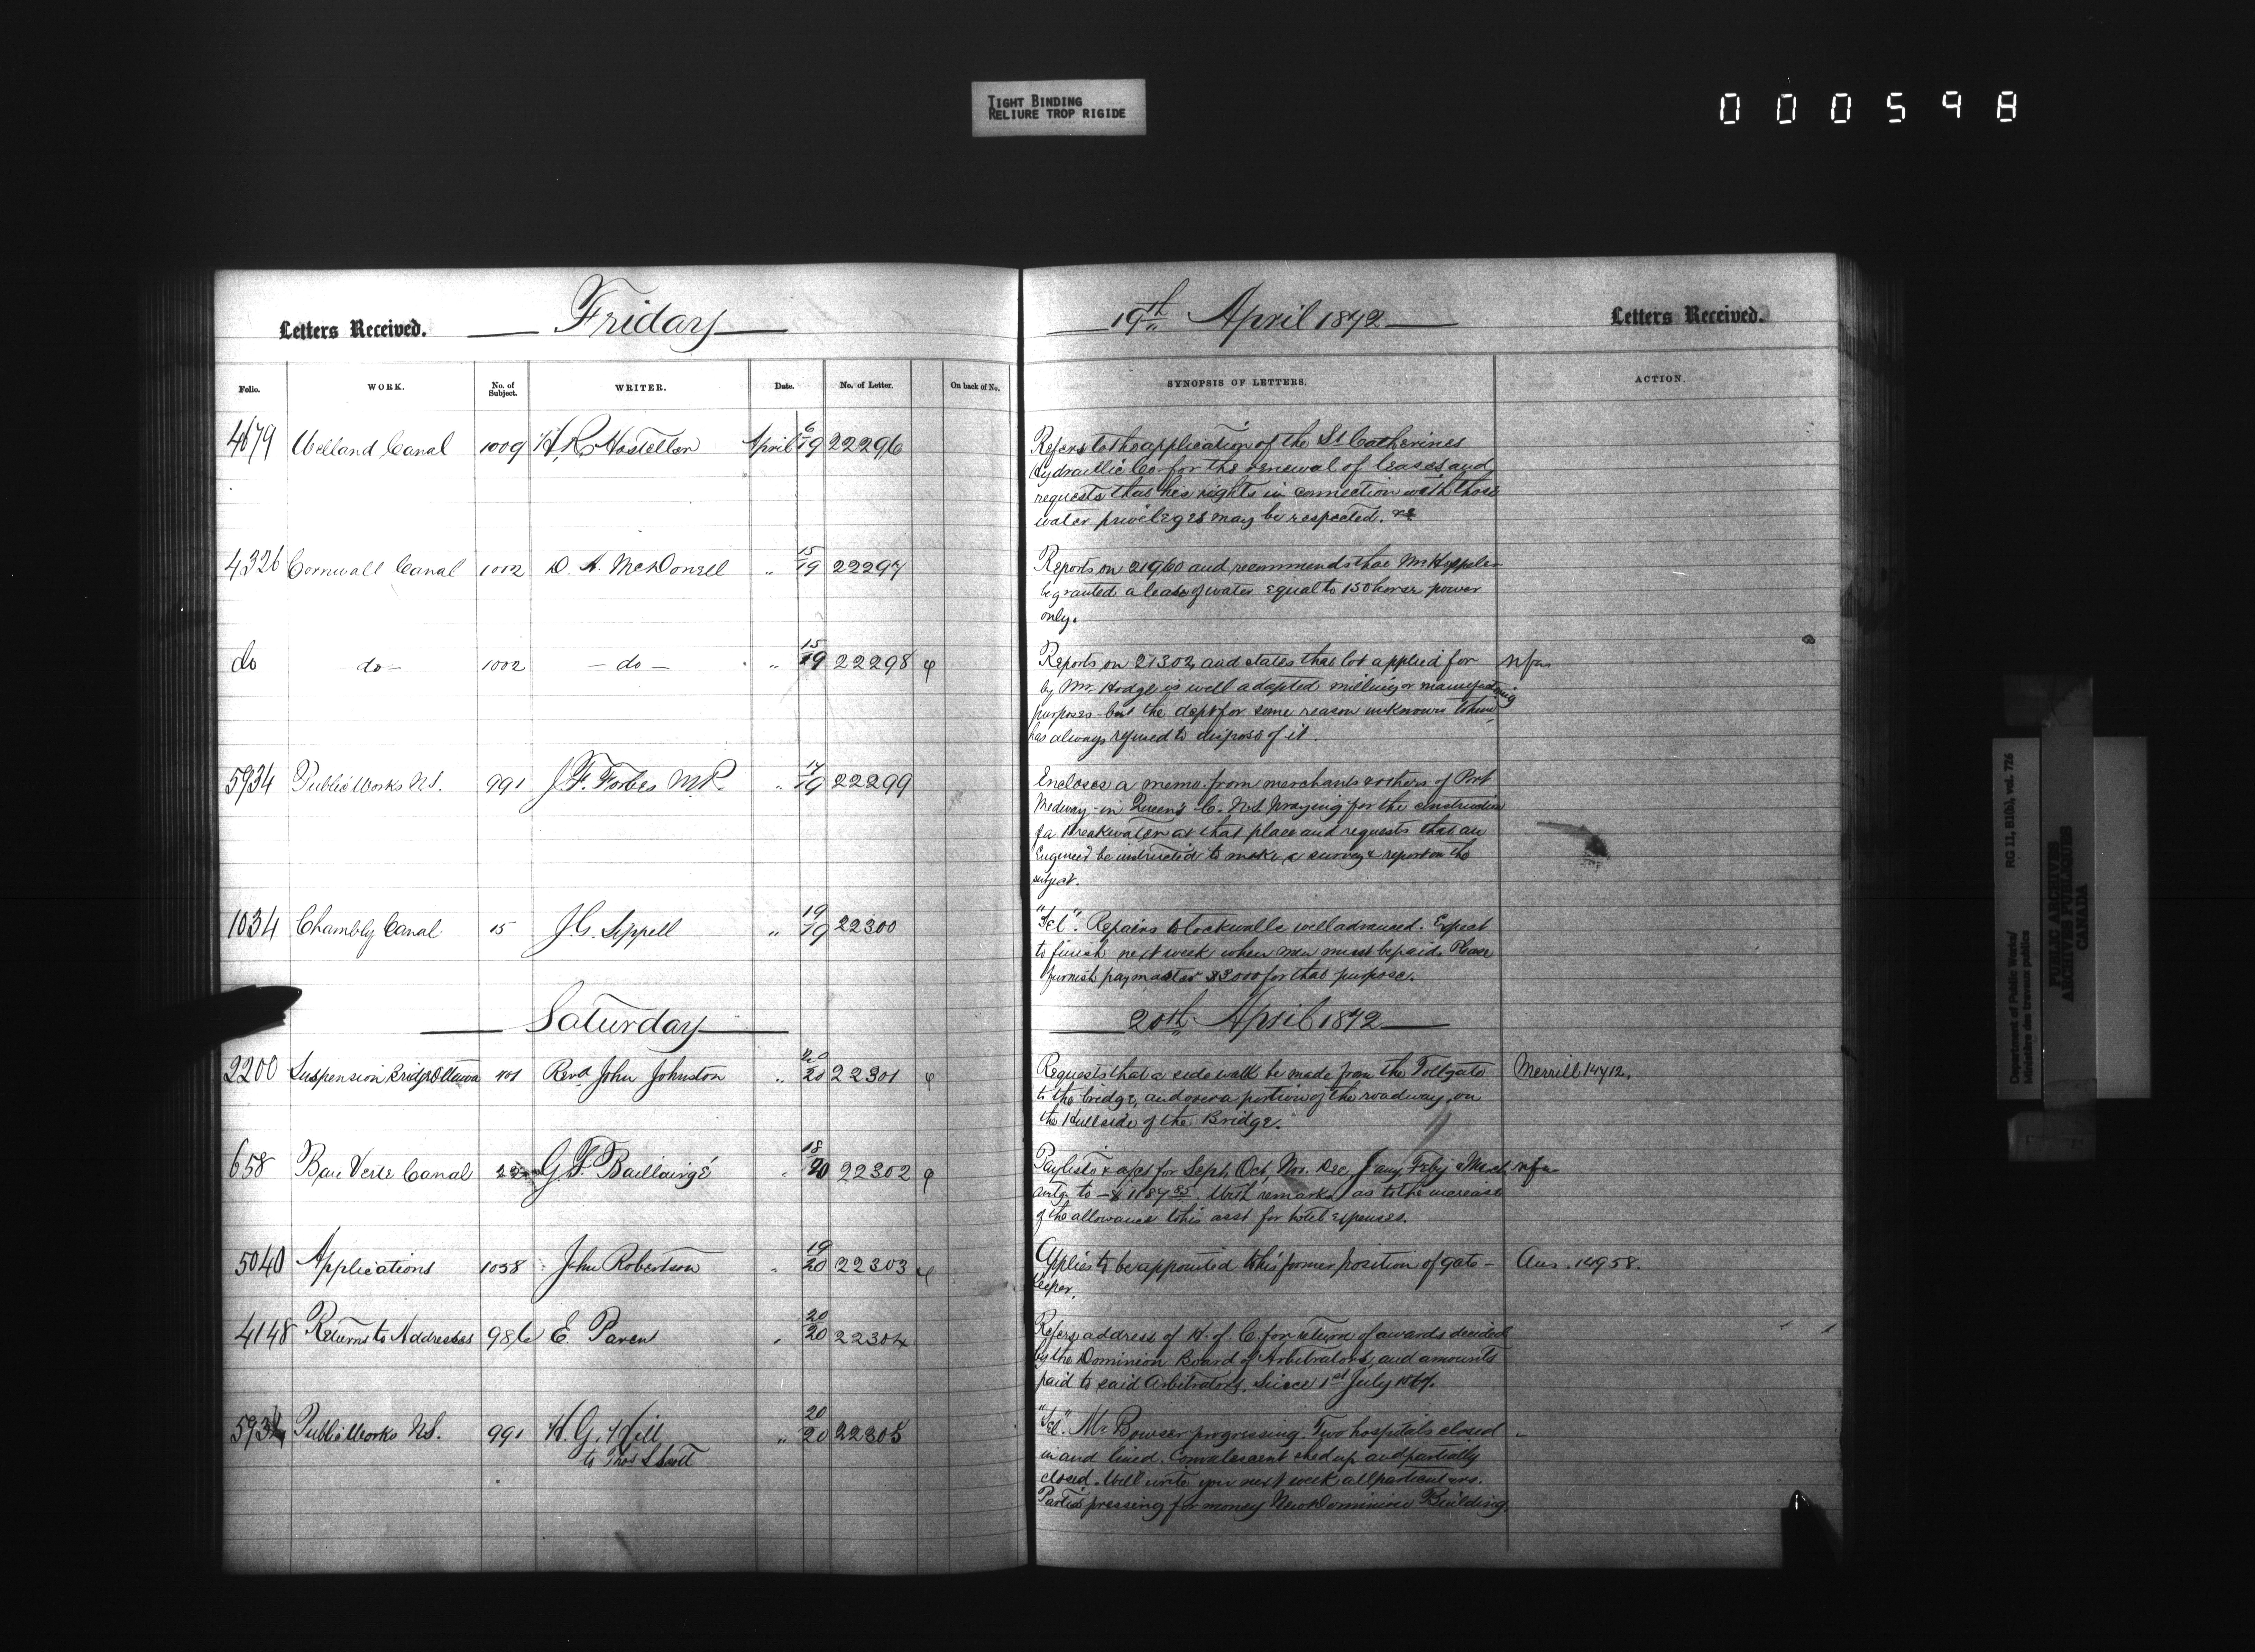 TIGHT BINDING
RELIURE TROP RIGIDE
000598
Letters Received. Friday 19th April 1872 Letters Received.
Folio. WORK. No. of Subject. WRITER. Date. No. of Letter. On back of No. SYNOPSIS OF LETTERS. ACTION.
4679 Welland Canal 1009 H. R. Hostetter April 6/19 22296
Refers to the application of the St Catherines
Hydraulic Co. for the renewal of leases and
requests that his rights in connection with those
water privileges may be respected. &c
4326 Cornwall Canal 1002 D. A. McDonell " 15/19 22297
Reports on 21960 and recommends that Mr
be granted a lease of water equal to 150 horse power
only.
do do 1002 do " 15/19 22298 φ
Reports on 21302, and states that lot applied for nfa
by Mr. Hodge is well adapted milling or manufacturing
purposes but the dept for some reason unknown to him,
has always refused to dispose of it.
5934 Public Works N.S. 991 J. F. Forbes M.P. " 17/19 22299
Encloses a memo. from merchants & others of Port
Medway in Queen's C. N.S. praying for the construction
of a Breakwater at that place and requests that an
Engineer be instructed to make a survey & report on the
subject.
1034 Chambly Canal 15 J. G. Sippell " 19/19 22300
"Tel". Repairs to lockwalls well advanced. Expect
to finish next week when men must be paid. Please
furnish paymaster $3000 for that purpose.
Saturday 20th April 1872
2200 Suspension Bridge Ottawa 401 Revd John Johnston " 20/20 22301 φ
Requests that a side walk be made from the Tollgate Merrill 14712.
to the bridge, and over a portion of the roadway, on
the Hull side of the Bridge.
658 Baie Verte Canal G. F. Baillairgé " 18/20 22302 φ
Paylists & a/cs for Sept, Oct, Nov. Dec, Jany, Feby & March nfa
amtg to $1187 85. With remarks as to the increase
of the allowance to his asst for hotel expenses.
5040 Applications 1038 John Robertson " 19/20 22303 φ
Applies to be appointed to his former position of gate- Ans. 14958.
keeper.
4148 Returns to Addresses 986 E. Parent " 20/20 22304
Refers address of H. of C. for return of awards decided
by the Dominion Board of Arbitrators, and amounts
paid to said Arbitrators, Since 1st July 1867.
5934 Public Works N.S. 991 H. G. Hill " 20/20 22305
to Thos S Scott
"Tel". Mr Bowser progressing. Two hospitals closed
in and lined. Convalescent shed up and partially
closed. Will write you next week all particulars.
Parties pressing for money New Dominion Building.
Department of Public Works/ RG 11, B1(b), vol. 726
Ministère des travaux publics
PUBLIC ARCHIVES
ARCHIVES PUBLIQUES
CANADA